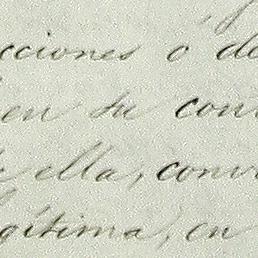 cciones o de
en su con
ella, conv
gítima, en